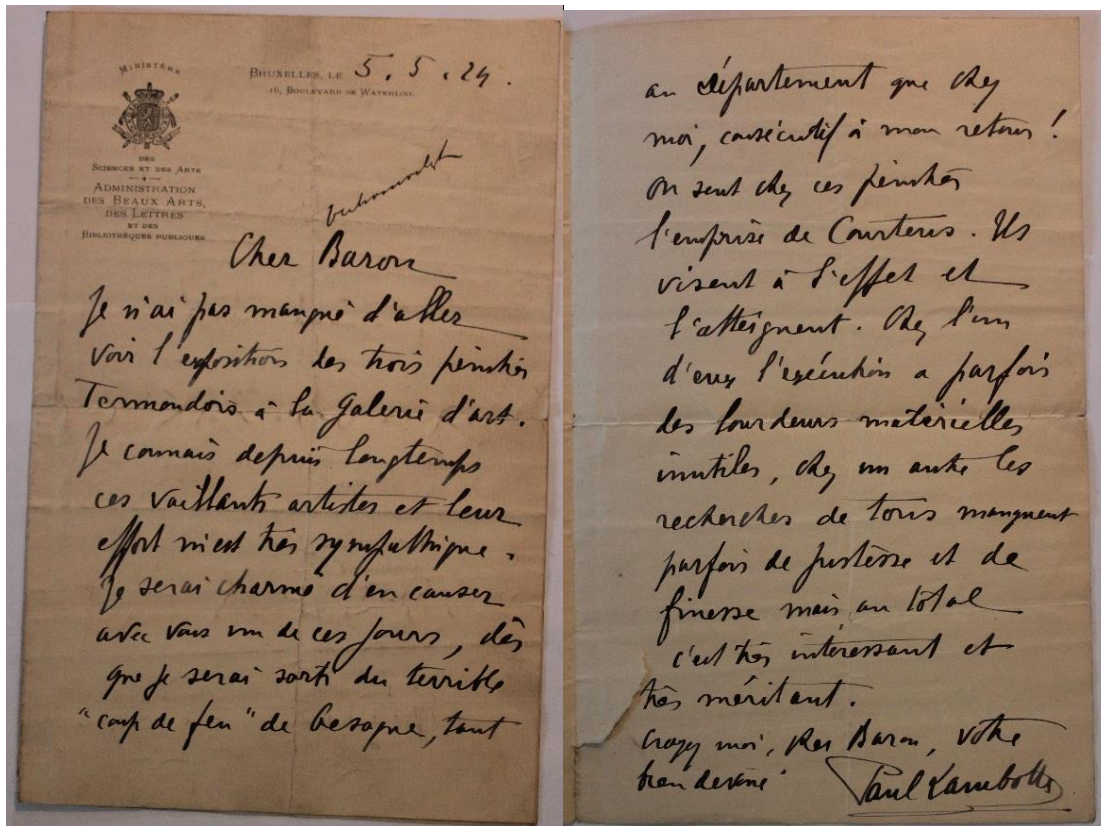 MINISTÈRE
DES
SCIENCES ET DES ARTS
ADMINISTRATION
DES BEAUX ARTS,
DES LETTRES
ET DES
BIBLIOTHÈQUES PUBLIQUES
BRUXELLES, LE 5.5.24.
16, BOULEVARD DE WATERLOO.
Cher Baron
Je n'ai pas manqué d'aller
voir l'exposition des trois peintres
Termondois à la Galerie d'art.
Je connais depuis longtemps
ces vaillants artistes et leur
effort m'est très sympathique.
Je serai charmé d'en causer
avec vous un de ces jours, dès
que je serai sorti du terrible
"coup de feu" de besogne, tant
au département que chez
moi, consécutif à mon retour !
On sent chez ces peintres
l'emprise de Courtens. Ils
visent à l'effet et
l'atteignent. Chez l'un
d'eux l'exécution a parfois
des lourdeurs matérielles
inutiles, chez un autre les
recherches de tons manquent
parfois de justesse et de
finesse mais au total
c'est très intéressant et
très méritant.
Croyez moi, cher Baron, votre
bien dévoué
Paul Lambotte